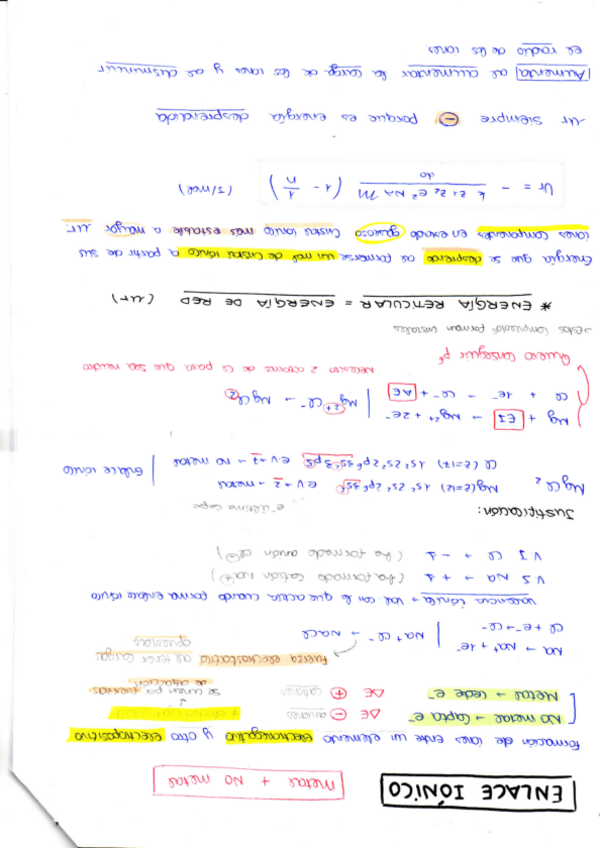 ENLACE IÓNICO
Metal + NO metal
Formación de iones entre un elemento electronegativo y otro electropositivo
NO metal → Capta e⁻ aniones ⊖ ΔE
Metal → Cede e⁻ cationes ⊕ ΔE
se unen por fuerzas de atracción
Na → Na⁺ + 1e⁻
Cl + e⁻ → Cl⁻
Na⁺ Cl⁻ → NaCl
fuerza electrostática al tener cargas opuestas
Valencia iónica → Val con la que actúa cuando forma enlace iónico
V I Na → +1 (ha formado catión Na⊕)
V I Cl → -1 (ha formado anión Cl⊖)
Justificación:
e⁻ última capa
MgCl₂ Mg (Z=12) 1s² 2s² 2p⁶ 3s² EV +2 → metal
Cl (Z=17) 1s² 2s² 2p⁶ 3s² 3p⁵ EV -1 → no metal
Enlace iónico
Mg + EI → Mg²⁺ + 2e⁻
Cl + 1e⁻ → Cl⁻ + AE
Mg⁺² Cl⁻ → MgCl₂
Necesito 2 átomos de Cl para que sea neutro
Quiero conseguir p⁶
Estos compuestos forman cristales
* ENERGÍA RETICULAR = ENERGÍA DE RED (Ur)
Energía que se desprende al formarse un mol de cristal iónico a partir de sus
iones componentes en estado gaseoso Cristal iónico más estable a mayor Ur.
Ur = - k z₁ z₂ e² NA M / do (1 - 1/n) (J/mol)
Ur siempre ⊖ porque es energía desprendida
Aumenta al aumentar la carga de los iones y al disminuir
el radio de los iones